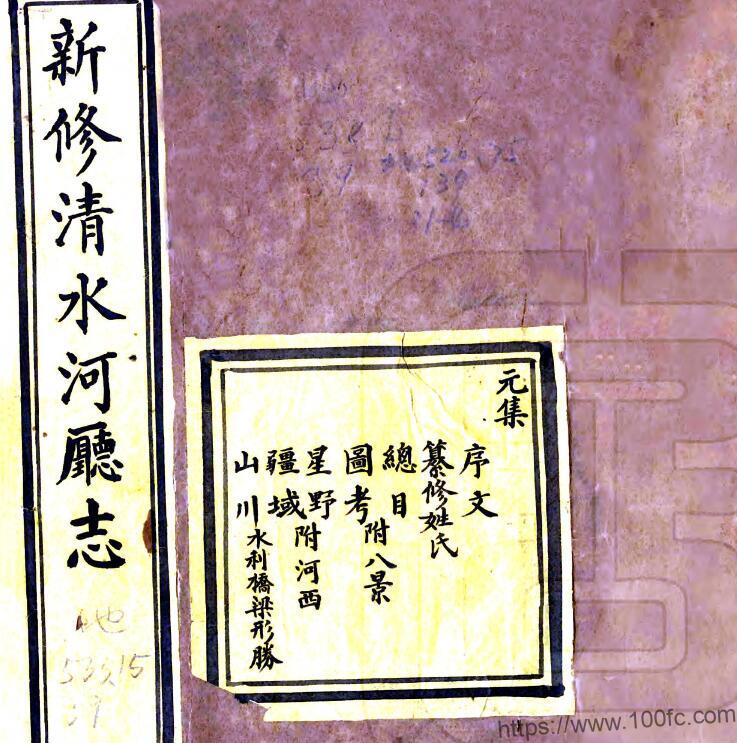 新修清水河廳志
元集
序文
纂修姓氏
總目
圖考附八景
星野
疆域附河西
山川水利橋梁形勝
地
533.15
39
https://www.100fc.com